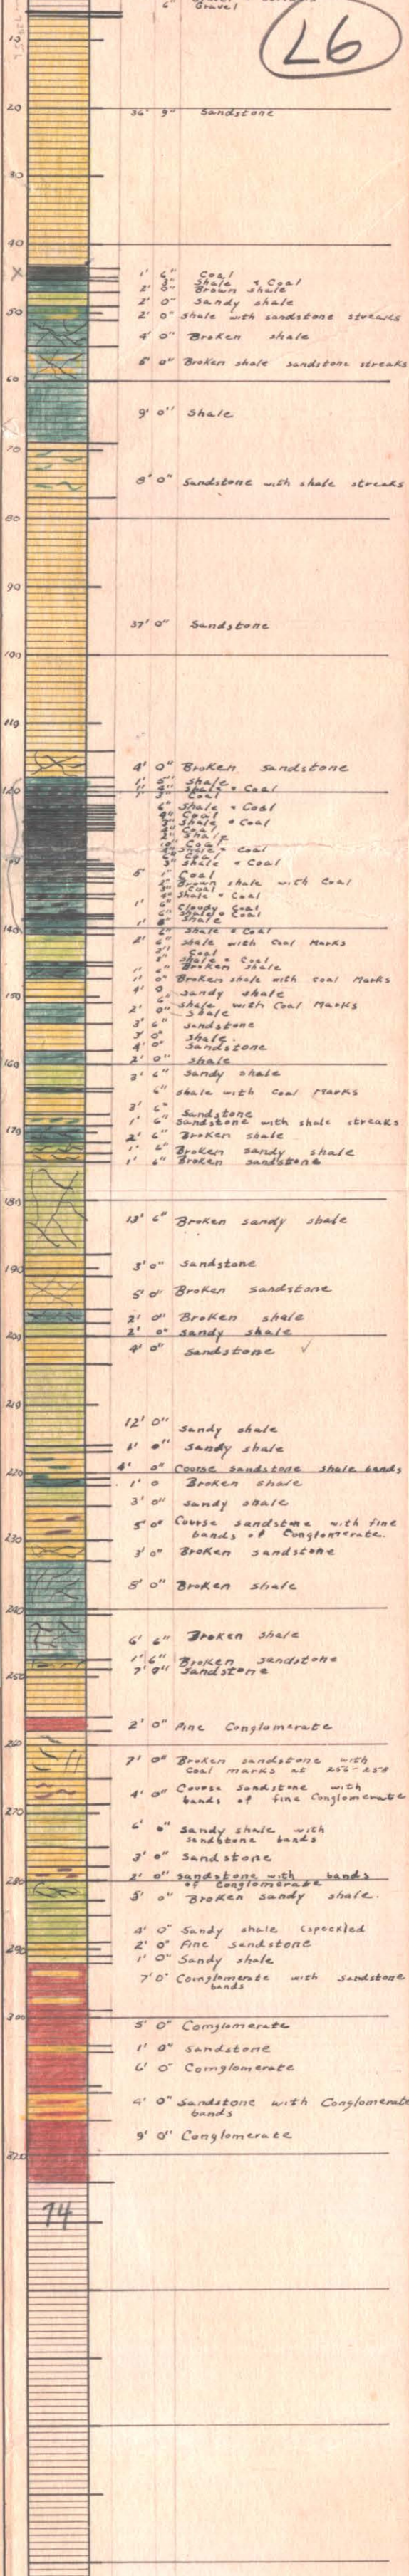 6" Gravel
L6
10
20
36' 9" Sandstone
30
40
X
1' 6" Coal
3" Shale & Coal
2' 0" Brown shale
2' 0" Sandy shale
50
2' 0" Shale with sandstone streaks
4' 0" Broken shale
6' 0" Broken shale sandstone streaks
60
9' 0" Shale
70
8' 0" Sandstone with shale streaks
80
90
37' 0" Sandstone
100
110
4' 0" Broken sandstone
1' 5" Shale
120
Shale & Coal
Coal
6" Shale & Coal
Coal
Shale & Coal
Coal
Shale
Coal
Shale & Coal
Coal
Shale & Coal
Coal
Brown shale with Coal
Coal
Shale & Coal
Cloudy Coal
Shale & Coal
Shale
140
6" Shale & Coal
2' 6" Shale with Coal Marks
Coal
Shale & Coal
Broken shale
1' 0" Broken shale with Coal Marks
4' 0 Sandy shale
150
6" Shale with Coal Marks
2' 0" Shale
3' 6" Sandstone
3' 0" Shale.
4' 0" Sandstone
160
2' 0" Shale
3' 6" Sandy shale
6" Shale with Coal Marks
3' 6" Sandstone
1' 6" Sandstone with shale streaks
170
2' 6" Broken shale
1' 6" Broken sandy shale
1' 6" Broken sandstone
180
13' 6" Broken sandy shale
190
3' 0" Sandstone
5' 0" Broken sandstone
2' 0" Broken shale
200
2' 0" Sandy shale
4' 0" Sandstone
210
12' 0" Sandy shale
1' 0" Sandy shale
220
4' 0" Course sandstone shale bands
1' 0 Broken shale
3' 0" Sandy shale
5' 0" Course sandstone with fine
bands of Conglomerate.
230
3' 0" Broken sandstone
8' 0" Broken shale
240
6' 6" Broken shale
1' 6" Broken sandstone
250
7' 0" Sandstone
2' 0" Fine Conglomerate
260
7' 0" Broken sandstone with
Coal marks at 256-258
4' 0" Course sandstone with
bands of fine Conglomerate
270
6' 0" Sandy shale with
sandstone bands
3' 0" Sandstone
280
2' 0" Sandstone with bands
of Conglomerate
5' 0" Broken sandy shale.
4' 0" Sandy shale (speckled
290
2' 0" Fine Sandstone
1' 0" Sandy shale
7' 0" Comglomerate with Sandstone
bands
300
5' 0" Comglomerate
1' 0" Sandstone
6' 0" Comglomerate
4' 0" Sandstone with Conglomerate
bands
9' 0" Conglomerate
320
74